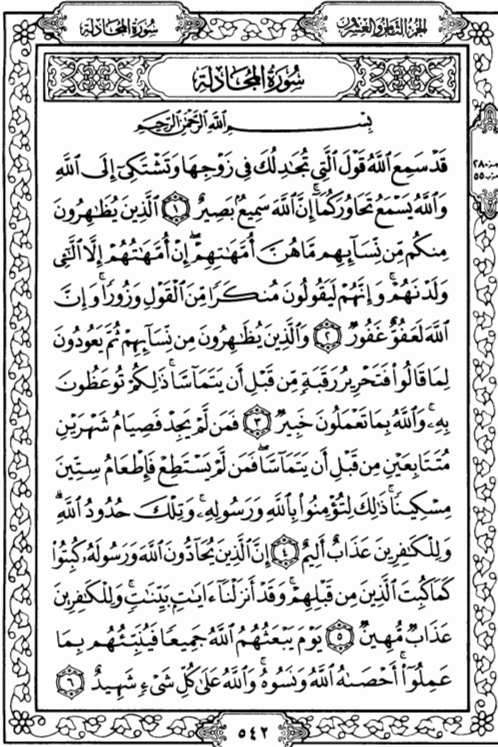 الجزء الثامن والعشرون
سُورَةُ المُجَادلة
سُورَةُ المُجَادلة
بِسْمِ ٱللَّهِ ٱلرَّحْمَٰنِ ٱلرَّحِيمِ
قَدْ سَمِعَ ٱللَّهُ قَوْلَ ٱلَّتِى تُجَٰدِلُكَ فِى زَوْجِهَا وَتَشْتَكِىٓ إِلَى ٱللَّهِ
وَٱللَّهُ يَسْمَعُ تَحَاوُرَكُمَآ ۚ إِنَّ ٱللَّهَ سَمِيعٌۢ بَصِيرٌ ١ ٱلَّذِينَ يُظَٰهِرُونَ
مِنكُم مِّن نِّسَآئِهِم مَّا هُنَّ أُمَّهَٰتِهِمْ ۖ إِنْ أُمَّهَٰتُهُمْ إِلَّا ٱلَّٰٓـِٔى
وَلَدْنَهُمْ ۚ وَإِنَّهُمْ لَيَقُولُونَ مُنكَرًا مِّنَ ٱلْقَوْلِ وَزُورًا ۚ وَإِنَّ
ٱللَّهَ لَعَفُوٌّ غَفُورٌ ٢ وَٱلَّذِينَ يُظَٰهِرُونَ مِن نِّسَآئِهِمْ ثُمَّ يَعُودُونَ
لِمَا قَالُوا۟ فَتَحْرِيرُ رَقَبَةٍ مِّن قَبْلِ أَن يَتَمَآسَّا ۚ ذَٰلِكُمْ تُوعَظُونَ
بِهِۦ ۚ وَٱللَّهُ بِمَا تَعْمَلُونَ خَبِيرٌ ٣ فَمَن لَّمْ يَجِدْ فَصِيَامُ شَهْرَيْنِ
مُتَتَابِعَيْنِ مِن قَبْلِ أَن يَتَمَآسَّا ۖ فَمَن لَّمْ يَسْتَطِعْ فَإِطْعَامُ سِتِّينَ
مِسْكِينًا ۚ ذَٰلِكَ لِتُؤْمِنُوا۟ بِٱللَّهِ وَرَسُولِهِۦ ۚ وَتِلْكَ حُدُودُ ٱللَّهِ ۗ
وَلِلْكَٰفِرِينَ عَذَابٌ أَلِيمٌ ٤ إِنَّ ٱلَّذِينَ يُحَآدُّونَ ٱللَّهَ وَرَسُولَهُۥ كُبِتُوا۟
كَمَا كُبِتَ ٱلَّذِينَ مِن قَبْلِهِمْ ۚ وَقَدْ أَنزَلْنَآ ءَايَٰتٍۭ بَيِّنَٰتٍ ۚ وَلِلْكَٰفِرِينَ
عَذَابٌ مُّهِينٌ ٥ يَوْمَ يَبْعَثُهُمُ ٱللَّهُ جَمِيعًا فَيُنَبِّئُهُم بِمَا
عَمِلُوٓا۟ ۚ أَحْصَىٰهُ ٱللَّهُ وَنَسُوهُ ۚ وَٱللَّهُ عَلَىٰ كُلِّ شَىْءٍ شَهِيدٌ ٦
٥٤٢